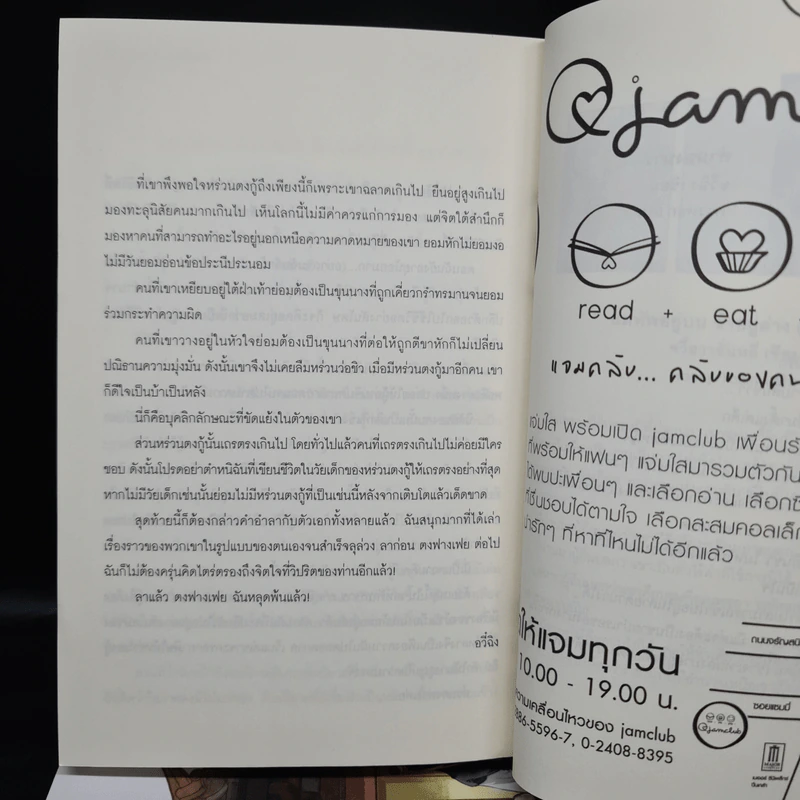 ที่เขาพึงพอใจหร่วนตงกู้ถึงเพียงนี้ก็เพราะเขาฉลาดเกินไป ยืนอยู่สูงเกินไป
มองทะลุนิสัยคนมากเกินไป เห็นโลกนี้ไม่มีค่าควรแก่การมอง แต่จิตใต้สำนึกก็
มองหาคนที่สามารถทำอะไรอยู่นอกเหนือความคาดหมายของเขา ยอมหักไม่ยอมงอ
ไม่มีวันยอมอ่อนข้อประนีประนอม
คนที่เขาเหยียบอยู่ใต้ฝ่าเท้าย่อมต้องเป็นขุนนางที่ถูกเคี่ยวกรำทรมานจนยอม
ร่วมกระทำความผิด
คนที่เขาวางอยู่ในหัวใจย่อมต้องเป็นขุนนางที่ต่อให้ถูกตีขาหักก็ไม่เปลี่ยน
ปณิธานความมุ่งมั่น ดังนั้นเขาจึงไม่เคยลืมหร่วนว่อชิว เมื่อมีหร่วนตงกู้มาอีกคน เขา
ก็ดีใจเป็นบ้าเป็นหลัง
นี่ก็คือบุคลิกลักษณะที่ขัดแย้งในตัวของเขา
ส่วนหร่วนตงกู้นั้นเถรตรงเกินไป โดยทั่วไปแล้วคนที่เถรตรงเกินไปไม่ค่อยมีใคร
ชอบ ดังนั้นโปรดอย่าตำหนิฉันที่เขียนชีวิตในวัยเด็กของหร่วนตงกู้ให้เถรตรงอย่างที่สุด
หากไม่มีวัยเด็กเช่นนั้นย่อมไม่มีหร่วนตงกู้ที่เป็นเช่นนี้หลังจากเติบโตแล้วเด็ดขาด
สุดท้ายนี้ก็ต้องกล่าวคำอำลากับตัวเอกทั้งหลายแล้ว ฉันสนุกมากที่ได้เล่า
เรื่องราวของพวกเขาในรูปแบบของตนเองจนสำเร็จลุล่วง ลาก่อน ตงฟางเฟย ต่อไป
ฉันก็ไม่ต้องครุ่นคิดไตร่ตรองถึงจิตใจที่วิปริตของท่านอีกแล้ว!
ลาแล้ว ตงฟางเฟย ฉันหลุดพ้นแล้ว!
อวี๋ฉิง
jam
read + eat
แจมคลับ... คลับของคน
แจ่มใส พร้อมเปิด jamclub เพื่อนรั
ที่พร้อมให้แฟนๆ แจ่มใสมารวมตัวกัน
ได้พบปะเพื่อนๆ และเลือกอ่าน เลือกซื
ที่ชื่นชอบได้ตามใจ เลือกสะสมคอลเล็ก
น่ารักๆ ที่หาที่ไหนไม่ได้อีกแล้ว
ให้แจมทุกวัน
10.00 - 19.00 น.
ความเคลื่อนไหวของ jamclub
886-5596-7, 0-2408-8395
ถนนจรัญสนิ
ซอยแซมมี่
jamclub